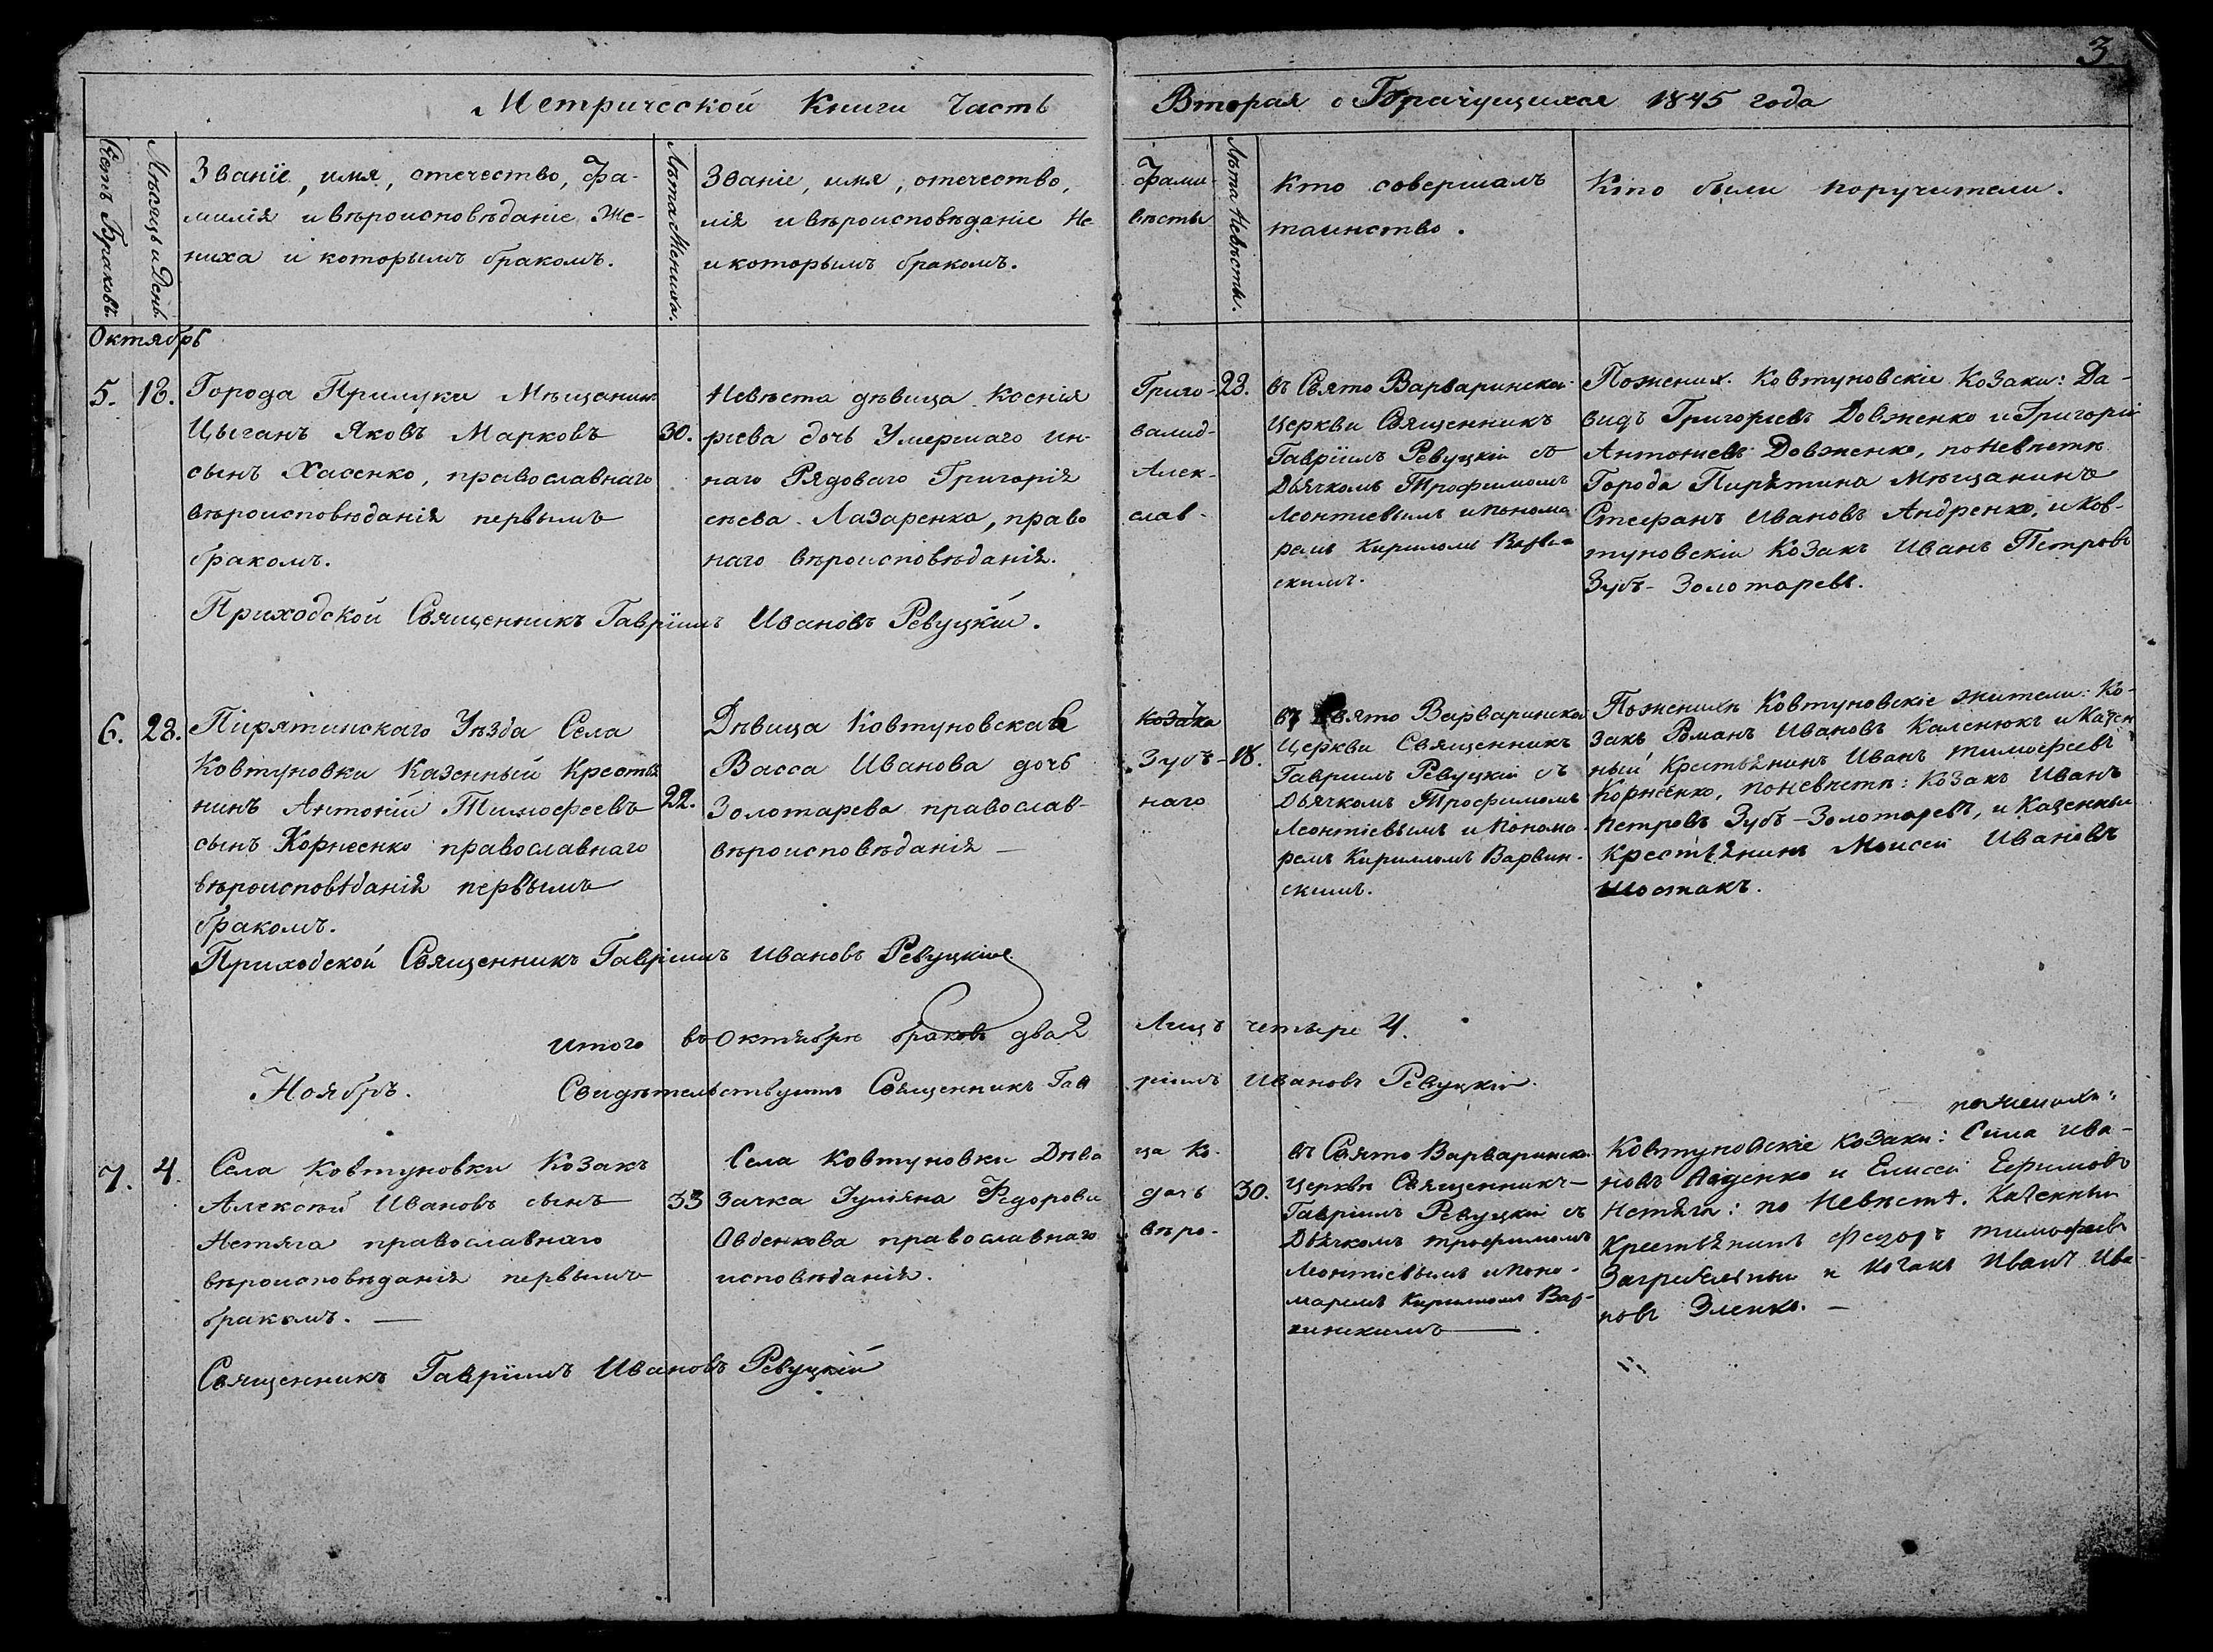 3
Метрической Книги Часть Вторая о Брачущихся 1845 года
Счетъ Браковъ.
Мѣсяцъ и День
Званіе, имя, отечество, Фа-
милія и вѣроисповѣданіе Же-
ниха и которымъ бракомъ.
Лѣта Жениха.
Званіе, имя, отечество, Фами-
лія и вѣроисповѣданіе Не вѣсты
и которымъ бракомъ.
Лѣта Невѣсты.
Кто совершалъ
таинство.
Кто были поручители.
Октябрь
5. 18.
Города Прилуки Мѣщанинъ
Цыганъ Яковъ Марковъ
сынъ Хасенко, православнаго
вѣроисповѣданія первымъ
бракомъ.
30.
Невѣста дѣвица Ксенія Григо-
рьева дочь Умершаго ин- валид-
наго Рядоваго Григорія Алек-
сѣева Лазаренка, право слав-
наго вѣроисповѣданія.
23.
въ Свято Варваринской
Церкви Священникъ
Гавріилъ Ревуцкій съ
Дьячкомъ Трофимомъ
Леонтіевымъ и Понома-
ремъ Кириломъ Варвин-
скимъ.
По жених. Ковтуновскіе Козаки: Да-
видъ Григорьевъ Довженко и Григорій
Антоньевъ Довженко, по Невѣстѣ
Города Пирятина Мѣщанинъ
Стефанъ Ивановъ Андренко, и Ков-
туновскій Козакъ Иванъ Петровъ
Зубъ-Золотаревъ.
Приходской Священникъ Гавріилъ Ивановъ Ревуцкій.
6. 28.
Пирятинскаго Уѣзда Села
Ковтуновки Казенный Крестья
нинъ Антоній Тимофеевъ
сынъ Корнеенко православнаго
вѣроисповѣданія первымъ
бракомъ.
22.
Дѣвица Ковтуновскаго Козака
Васса Иванова дочь Зубъ-
Золотарева православ- наго
вѣроисповѣданія —
18.
въ Свято Варваринской
Церкви Священникъ
Гавріилъ Ревуцкій съ
Дьячкомъ Трофимомъ
Леонтіевымъ и Понома-
ремъ Кириломъ Варвин-
скимъ.
По женихѣ Ковтуновскіе жители: Ко-
закъ Романъ Ивановъ Каленюкъ и Казен
ный Крестьянинъ Иванъ Тимофеевъ
Корнеенко, по невѣстѣ: Козакъ Иванъ
Петровъ Зубъ-Золотаревъ, и Казенный
Крестьянинъ Моисей Ивановъ
Шостакъ.
Приходской Священникъ Гавріилъ Ивановъ Ревуцкій
итого въ Октябрѣ браковъ два 2 Лицъ четыре 4.
Ноябрь.
Свидѣтельствуетъ Священникъ Гав ріилъ Ивановъ Ревуцкій.
7. 4.
Села Ковтуновки Козакъ
Алексѣй Ивановъ сынъ
Нетяга православнаго
вѣроисповѣданія первымъ
бракомъ. —
33
Села Ковтуновки Дѣви ца Ко-
зачка Іуліяна Федорова дочь
Овденкова православнаго вѣро-
исповѣданія.
30.
въ Свято Варваринской
Церкви Священникъ
Гавріилъ Ревуцкій съ
Дьячкомъ Трофимомъ
Леонтіевымъ и Поно-
маремъ Кириломъ Вар-
винскимъ — .
по жениху:
Ковтуновскіе Козаки: Сила Ива-
новъ и Елисей Ефимовъ
Нетяги: по Невѣстѣ. Казенный
Крестьянинъ Федоръ Тимофеевъ
Загребельный и Козакъ Иванъ Ива-
новъ Зленко. —
Священникъ Гавріилъ Ивановъ Ревуцкій